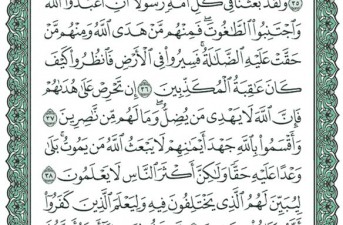 ٣٥ وَلَقَدْ بَعَثْنَا فِي كُلِّ أُمَّةٍ رَّسُولًا أَنِ اعْبُدُوا اللَّهَ
وَاجْتَنِبُوا الطَّاغُوتَ فَمِنْهُم مَّنْ هَدَى اللَّهُ وَمِنْهُم مَّنْ
حَقَّتْ عَلَيْهِ الضَّلَالَةُ فَسِيرُوا فِي الْأَرْضِ فَانظُرُوا كَيْفَ
كَانَ عَاقِبَةُ الْمُكَذِّبِينَ ٣٦ إِن تَحْرِصْ عَلَىٰ هُدَاهُمْ
فَإِنَّ اللَّهَ لَا يَهْدِي مَن يُضِلُّ وَمَا لَهُم مِّن نَّاصِرِينَ ٣٧
وَأَقْسَمُوا بِاللَّهِ جَهْدَ أَيْمَانِهِمْ لَا يَبْعَثُ اللَّهُ مَن يَمُوتُ بَلَىٰ
وَعْدًا عَلَيْهِ حَقًّا وَلَٰكِنَّ أَكْثَرَ النَّاسِ لَا يَعْلَمُونَ ٣٨
لِيُبَيِّنَ لَهُمُ الَّذِي يَخْتَلِفُونَ فِيهِ وَلِيَعْلَمَ الَّذِينَ كَفَرُوا